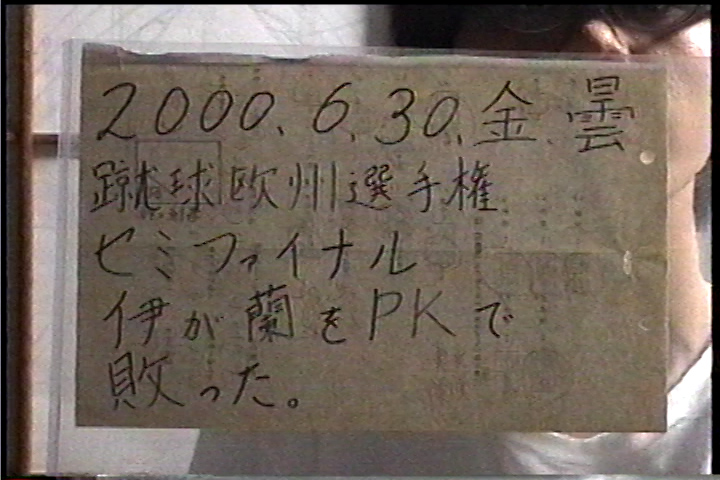 2000.6.30.金.曇
蹴球欧州選手権
セミファイナル
伊が蘭をPKで
敗った。